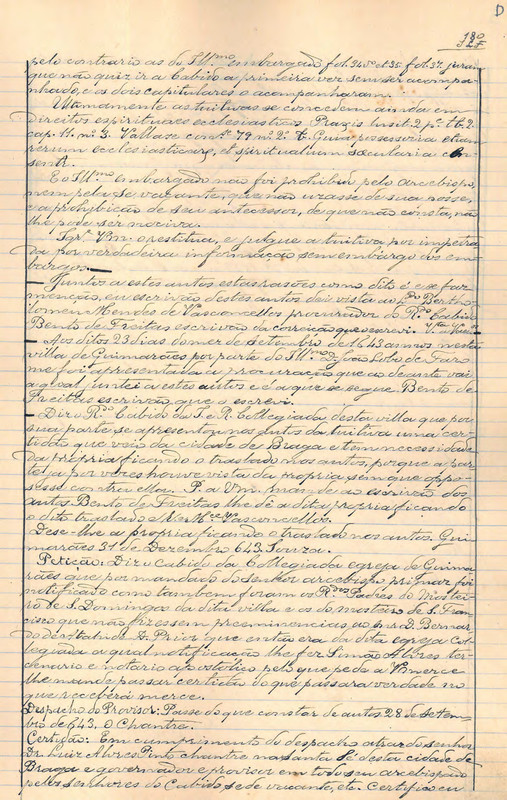 D
180
pelo contrario as do Ill.mo embargado fol. 34 vº et 35. fol. 37. juram
que não quiz ir a Cabido a primeira vez sem ser acompa-
nhado, e os dois capitulares o acompanharam.
Ultimamente as tuitivas se concedem ainda em
Direitos espirituaes ecclesiasticos
cap. 17. nº 3. Valasc cons. 79 nº 2º
rerum ecclesiasticarum, et spiritualium sæcularia
senti.
E o Ill.mo embargado não foi prohibido pelo arcebispo,
nem pelo se vacante, que não usasse da sua posse,
e a prohibição de seu antecessor, de que não consta, não
lhe pode ser nociva.
o restitua, e julgue a tuitiva por impetra
da por verdadeira informação sem embargo dos em-
bargos.—
— Juntos a estes autos estas rasões como dito é e se faz
menção, eu escrivão destes autos dei vista ao Ldo Bertho-
lomeu Mendes de Vasconcellos procurador do R.do Cabido
Bento de Freitas escrivão da correição que escrevi.
— Aos ditos 23 dias do mez de Setembro de 1643 annos nesta
villa de Guimarães por parte do Ill.mo D. João Lobo de Faro
me foi apresentada a procuração que ao deante vai
a qual juntei a estes autos e é a que se segue. Bento de
Freitas escrivão, que o escrevi.
— Diz o R.do Cabido da I. e R. Collegiada desta villa que por
sua parte se apresentou nos autos da tuitiva uma cer-
tidão que veio da cidade de Braga e tem necessidade
da propria ficando o traslado nos autos, porque a par-
te já por vezes houve vista da propria sem que oppo-
sesse contra ella. P. a Vm. mande ao escrivão dos
autos Bento de Freitas lhe dê a dita propria ficando
o dito traslado e R. Mce. Vasconcellos.
Dese-lhe a propria ficando o traslado nos autos. Gui-
marães 31 de Dezembro 643. Souza.
Petição: Diz o Cabido da Collegiada egreja de Guima-
rães que por mandado do Senhor arcebispo primaz foi
notificado como tambem foram os R.dos Padres do Mostei-
ro de S. Domingos da dita villa e os do mosteiro de S. Fran-
cisco que não fizessem preeminencias ao snr. D. Bernar-
do de Ataide D. Prior que então era da dita egreja Col-
legiada a qual notificação lhe fez Simão Alvres ter-
cenario e notario apostolico pelo que pede a Vmerce
lhe mande passar certidão do que passar a verdade no
que receberá merce.
Despacho do Provisor: Passe do que constar de autos 28 de Setem-
bro de 643. O Chantre.
Certidão: Em cumprimento do despacho atraz do senhor
Dr. Luiz Alvres Pinto chantre na santa Sé desta cidade de
Braga e governador e provisor em todo seu arcebispado
pelos senhores do Cabido sede vacante, etc. Certifico eu